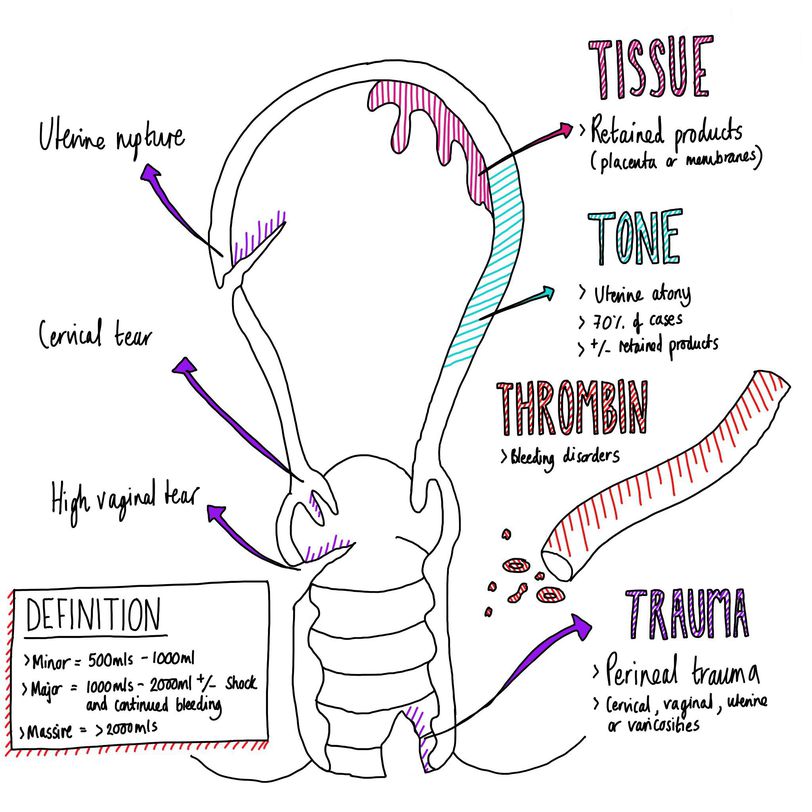 TISSUE
> Retained products
(placenta or membranes)
TONE
> Uterine atony
> 70% of cases
> +/- retained products
THROMBIN
> Bleeding disorders
TRAUMA
> Perineal trauma
> Cervical, vaginal, uterine
or varicosities
Uterine rupture
Cervical tear
High vaginal tear
DEFINITION
> Minor = 500mls - 1000ml
> Major = 1000mls - 2000ml +/- shock
and continued bleeding
> Massive = > 2000mls